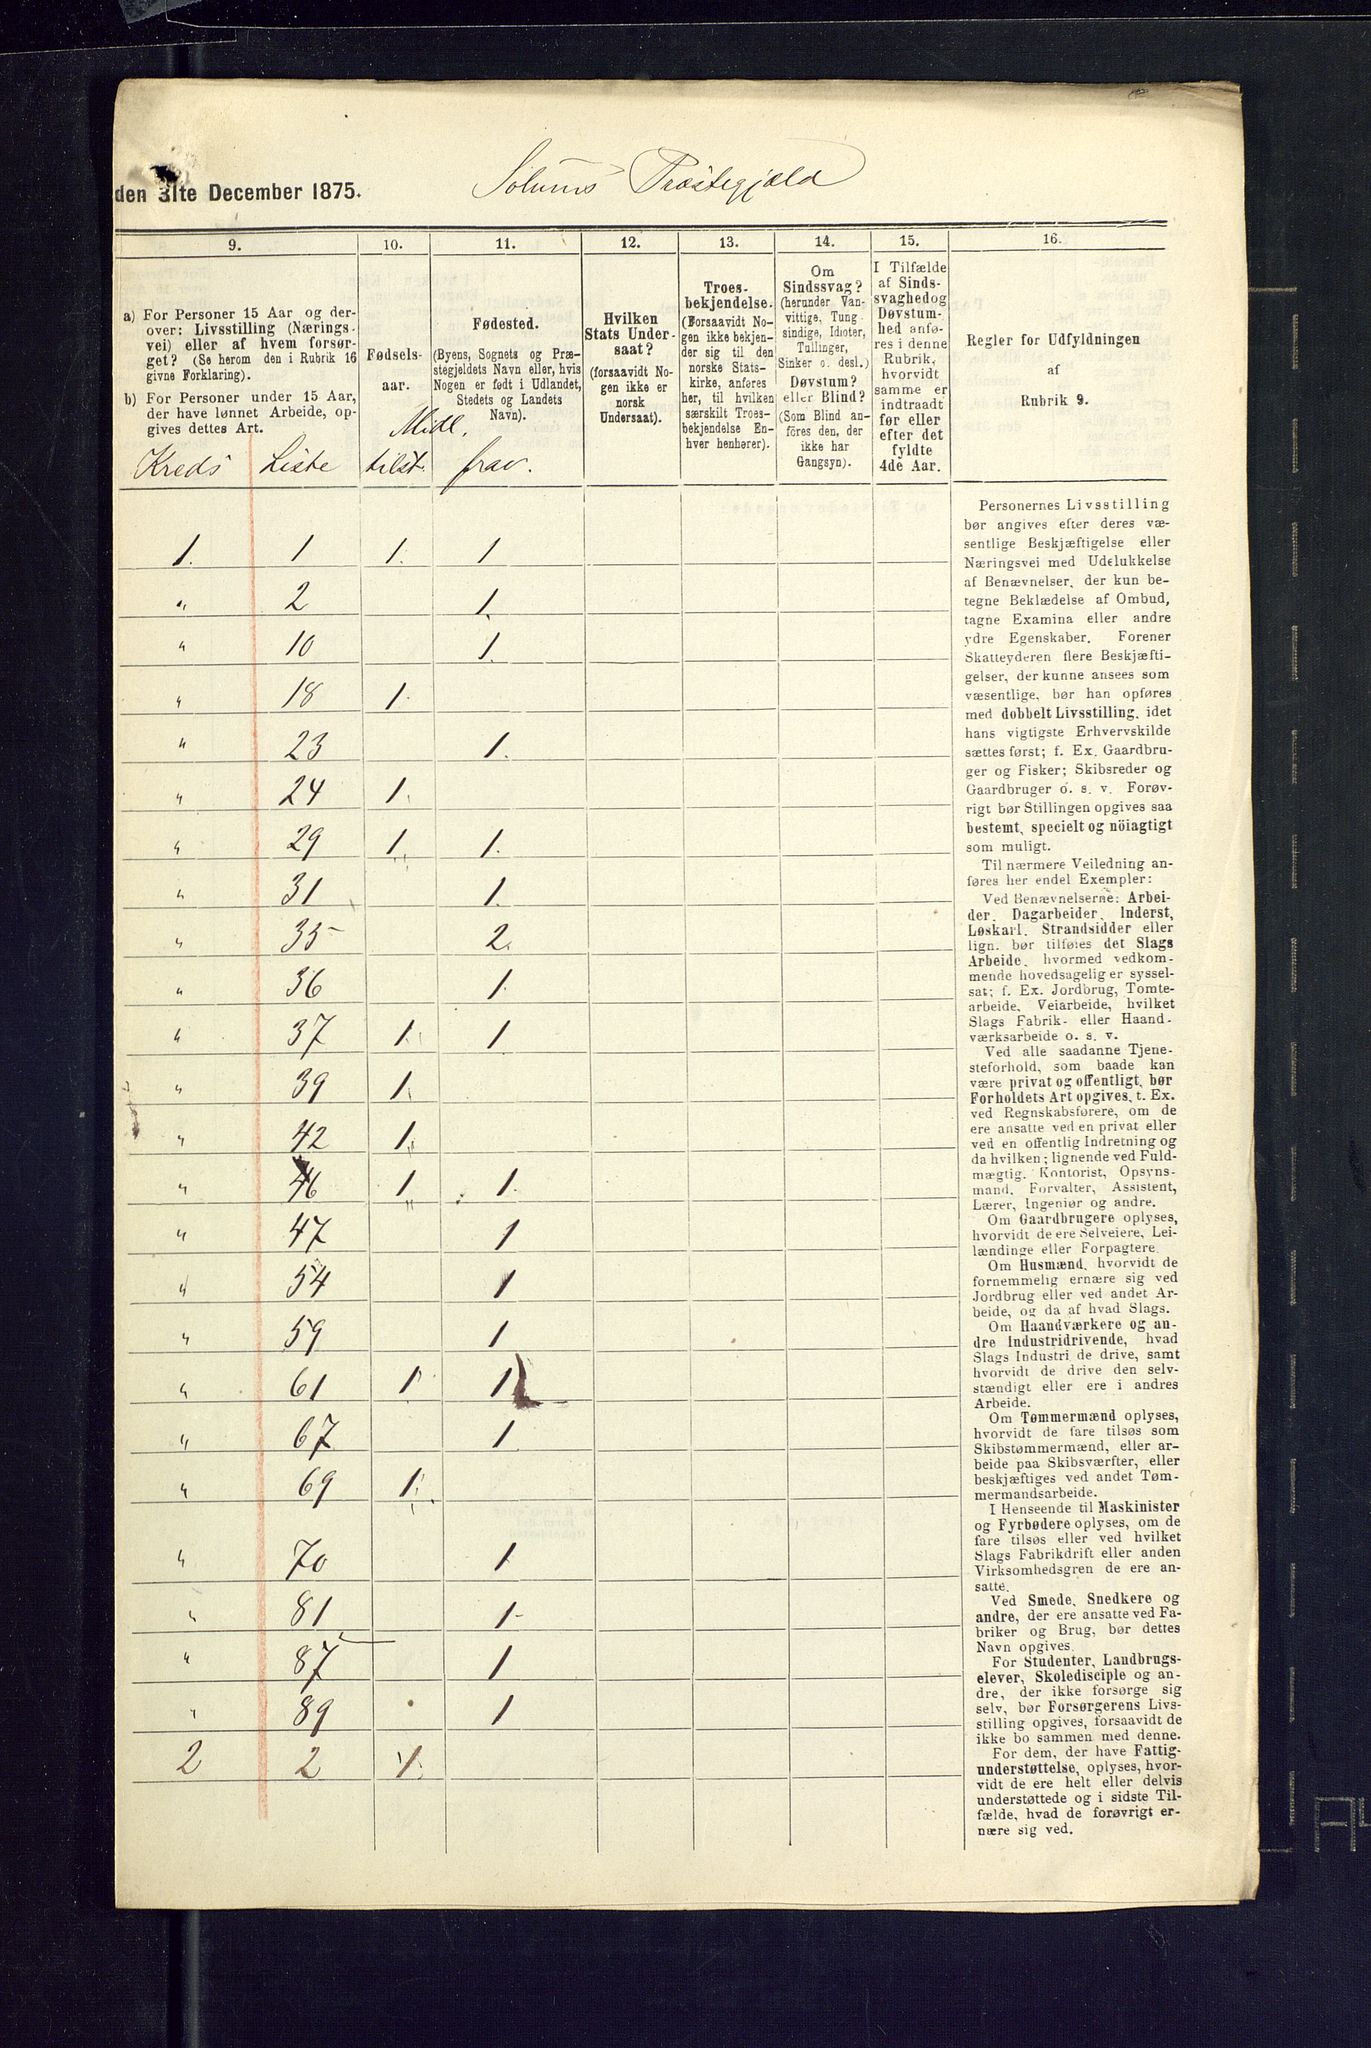 den 31te December 1875.
Solums Præstegjæld
9. 10. 11. 12. 13. 14. 15. 16.
a) For Personer 15 Aar og der-
over: Livsstilling (Nærings-
vei) eller af hvem forsør-
get? (Se herom den i Rubrik 16
givne Forklaring).
b) For Personer under 15 Aar,
der have lønnet Arbeide, op-
gives dettes Art.
Fødsels-
aar.
Fødested.
(Byens, Sognets og Præ-
stegjeldets Navn eller, hvis
Nogen er født i Udlandet,
Stedets og Landets
Navn).
Hvilken
Stats Under-
saat?
(forsaavidt No-
gen ikke er
norsk
Undersaat).
Troes-
bekjendelse.
(Forsaavidt No-
gen ikke bekjen-
der sig til den
norske Stats-
kirke, anføres
her, til hvilken
særskilt Troes-
bekjendelse En-
hver henhører).
Om
Sindssvag?
(herunder Van-
vittige, Tung-
sindige, Idioter,
Tullinger,
Sinker o. desl.)
Døvstum?
eller Blind?
(Som Blind an-
föres den, der
ikke har
Gangsyn).
I Tilfælde
af Sinds-
svaghedog
Døvstum-
hed anfø-
res i denne
Rubrik,
hvorvidt
samme er
indtraadt
før eller
efter det
fyldte
4de Aar.
Regler for Udfyldningen
af
Rubrik 9.
Midl.
Kreds Liste tilst. frav.
1. 1 1. 1
" 2 1.
" 10 1.
" 18 1.
" 23 1.
" 24 1.
" 29 1. 1.
" 31 1.
" 35 2.
" 36 1.
" 37 1. 1
" 39 1.
" 42 1.
" 46 1 1.
" 47 1
" 54 1
" 59 1
" 61 1 1
" 67 1.
" 69 1.
" 70 1
" 81 1
" 87 1
" 89 1
2 2 1.
Personernes Livsstilling
bør angives efter deres væ-
sentlige Beskjæftigelse eller
Næringsvei med Udelukkelse
af Benævnelser, der kun be-
tegne Beklædelse af Ombud,
tagne Examina eller andre
ydre Egenskaber. Forener
Skatteyderen flere Beskjæfti-
gelser, der kunne ansees som
væsentlige, bør han opføres
med dobbelt Livsstilling, idet
hans vigtigste Erhvervskilde
sættes først; f. Ex. Gaardbru-
ger og Fisker; Skibsreder og
Gaardbruger o. s. v. Forøv-
rigt bør Stillingen opgives saa
bestemt, specielt og nöiagtigt
som muligt.
Til nærmere Veiledning an-
føres her endel Exempler:
Ved Benævnelserne: Arbei-
der, Dagarbeider, Inderst,
Løskarl, Strandsidder eller
lign. bør tilføies det Slags
Arbeide, hvormed vedkom-
mende hovedsagelig er syssel-
sat; f. Ex. Jordbrug, Tomte-
arbeide, Veiarbeide, hvilket
Slags Fabrik- eller Haand-
værksarbeide o. s. v.
Ved alle saadanne Tjene-
steforhold, som baade kan
være privat og offentligt, bør
Forholdets Art opgives, t. Ex.
ved Regnskabsførere, om de
ere ansatte ved en privat eller
ved en offentlig Indretning og
da hvilken; lignende ved Fuld-
mægtig, Kontorist, Opsyns-
mand, Forvalter, Assistent,
Lærer, Ingeniør og andre.
Om Gaardbrugere oplyses,
hvorvidt de ere Selveiere, Lei-
lændinge eller Forpagtere.
Om Husmænd, hvorvidt de
fornemmelig ernære sig ved
Jordbrug eller ved andet Ar-
beide, og da af hvad Slags.
Om Haandværkere og an-
dre Industridrivende, hvad
Slags Industri de drive, samt
hvorvidt de drive den selv-
stændigt eller ere i andres
Arbeide.
Om Tømmermænd oplyses,
hvorvidt de fare tilsøs som
Skibstømmermænd, eller ar-
beide paa Skibsværfter, eller
beskjæftiges ved andet Tøm-
mermandsarbeide.
I Henseende til Maskinister
og Fyrbødere oplyses, om de
fare tilsøs eller ved hvilket
Slags Fabrikdrift eller anden
Virksomhedsgren de ere an-
satte.
Ved Smede, Snedkere og
andre, der ere ansatte ved Fa-
briker og Brug, bør dettes
Navn opgives.
For Studenter, Landbrugs-
elever, Skoledisciple og an-
dre, der ikke forsørge sig
selv, bør Forsørgerens Livs-
stilling opgives, forsaavidt de
ikke bo sammen med denne.
For dem, der have Fattig-
understøttelse, oplyses, hvor-
vidt de ere helt eller delvis
understøttede og i sidste Til-
fælde, hvad de forøvrigt er-
nære sig ved.
A4